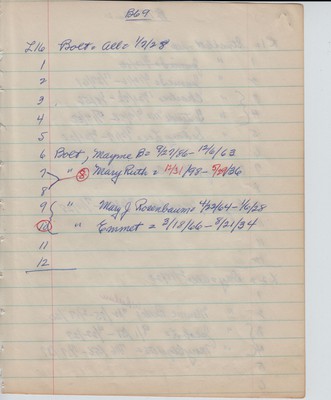 B69
L16 Bolt = All = 1/7/28
1
2
3
4
5
6 Bolt, Mayme B = 9/27/86 - 12/6/63
7 " (8) Mary Ruth = 12/31/98 - 5/29/36
8
9 " Mary J. Rosenbaum = 4/22/64 - 1/6/28
10 " Emmet = 3/18/66 - 8/21/34
11
12